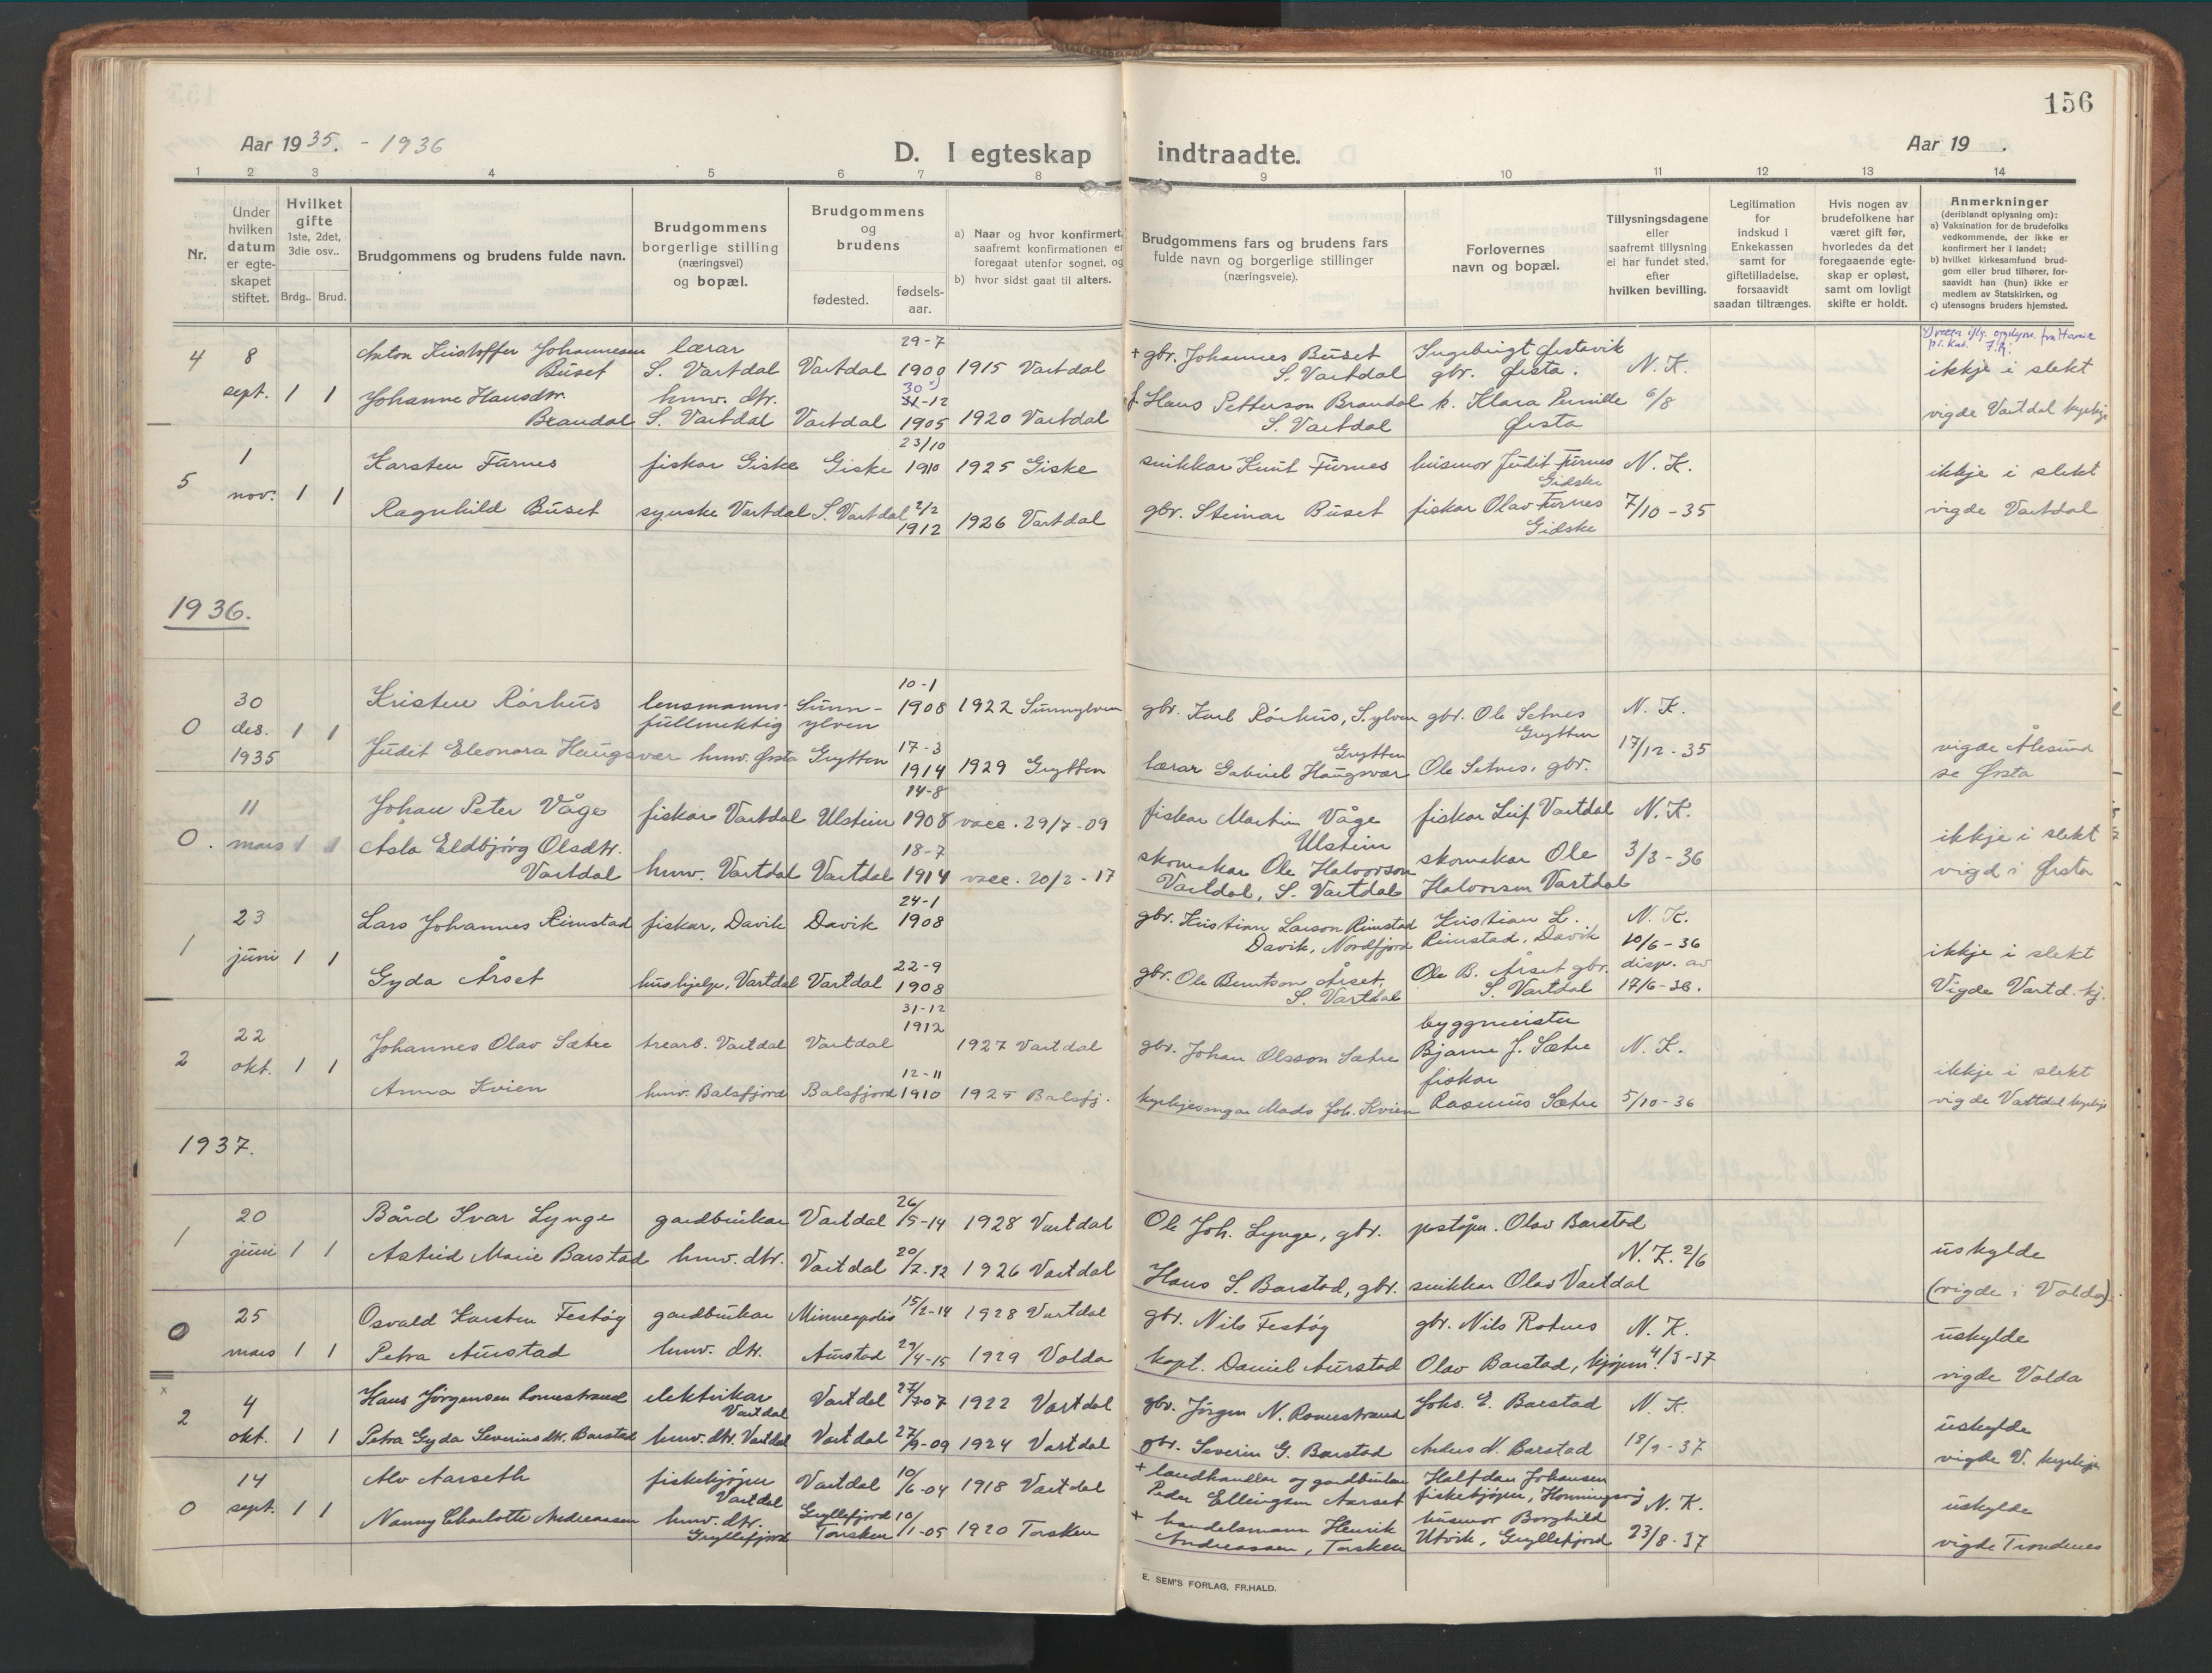 156
Aar 1935. - 1936
D. I egteskap indtraadte.
Aar 19 .
1 2 3 4 5 6 7 8 9 10 11 12 13 14
Nr.
Under hvilken datum er egte- skapet stiftet.
Hvilket gifte 1ste, 2det, 3die osv..
Brdg.. Brud.
Brudgommens og brudens fulde navn.
Brudgommens borgerlige stilling (næringsvei) og bopæl.
Brudgommens og brudens
fødested.
fødsels- aar.
a) Naar og hvor konfirmert, saafremt konfirmationen er foregaat utenfor sognet, og
b) hvor sidst gaat til alters.
Brudgommens fars og brudens fars fulde navn og borgerlige stillinger (næringsveie).
Forlovernes navn og bopæl.
Tillysningsdagene eller saafremt tillysning ei har fundet sted, efter hvilken bevilling.
Legitimation for indskud i Enkekassen samt for giftetilladelse, forsaavidt saadan tiltrænges.
Hvis nogen av brudefolkene har været gift før, hvorledes da det foregaaende egte- skap er opløst, samt om lovligt skifte er holdt.
Anmerkninger (deriblandt oplysning om):
a) Vaksination for de brudefolks vedkommende, der ikke er konfirmert her i landet;
b) hvilket kirkesamfund brud- gom eller brud tilhører, for- saavidt han (hun) ikke er medlem av Statskirken, og
c) utensogns bruders hjemsted.
4 8 sept. 1 1
Anton Kristoffer Johannesen Buset
lærar S. Vartdal Vartdal 29-7 1900 1915 Vartdal
+ gbr. Johannes Buset S. Vartdal
Ingebrigt Ørstavik gbr. Ørsta.
N. K.
ikkje i slekt
Johanne Hansdtr. Brandal
husv. dtr. S. Vartdal Vartdal 30 x) 31-12 1905 1920 Vartdal
f. Hans Petterson Brandal S. Vartdal
k. Klara Pernille Ørsta
6/8
vigde Vartdal kyrkje
5 1 nov. 1 1
Karsten Furnes fiskar Giske Giske 23/10 1910 1925 Giske
snikkar Knut Furnes
husmor Judit Furnes Gidske
N. K.
ikkje i slekt
Ragnhild Buset syerske Vartdal S. Vartdal 2/2 1912 1926 Vartdal
gbr. Steinar Buset
fiskar Olav Furnes Gidske
7/10 - 35
vigde Vartdal
1936.
0 30 des. 1935 1 1
Kristen Rørhus lensmanns- fullmektig Sunn- ylven 10-1 1908 1922 Sunnylven
gbr. Karl Rørhus, S.ylven
gbr. Ole Setnes Grytten
N. K.
Judit Eleonora Haugsvær husv. Ørsta Grytten 17-3 1914 1929 Grytten
lærar Gabriel Haugsvær Grytten
Ole Setnes, gbr.
17/12 - 35
vigde Ålesund se Ørsta
0. 11 mars 1 1
Johan Peter Våge fiskar Vartdal Ulstein 14-8 1908 vacc. 29/7-09
fiskar Martin Våge Ulstein
fiskar Leif Vartdal
N. K.
ikkje i slekt
Åsla Eldbjørg Olsdtr. Vartdal husv. Vartdal Vartdal 18-7 1914 vacc. 20/2-17
skomakar Ole Halvorson Vartdal, S. Vartdal
skomakar Ole Halvorsen Vartdal
3/3 - 36
vigd i Ørsta
1 23 juni 1 1
Lars Johannes Rimstad fiskar, Davik Davik 24-1 1908
gbr. Kristian Larson Rimstad Davik, Nordfjord
Kristian L. Rimstad, Davik
N. K. 10/6 - 36
ikkje i slekt
Gyda Årset hushjelp, Vartdal Vartdal 22-9 1908
gbr. Ole Berntson Årset, S. Vartdal
Ole B. Årset gbr. S. Vartdal
disp. av 17/6-36.
Vigde Vartd. kj.
2 22 okt. 1 1
Johannes Olav Sætre trearb. Vartdal Vartdal 31-12 1912 1927 Vartdal
gbr. Johan Olsson Sætre
byggmeister Bjarne J. Sætre
N. K.
ikkje i slekt
Anna Kvien husv. Balsfjord Balsfjord 12-11 1910 1925 Balsfj.
kyrkjesongar Mads Joh. Kvien
fiskar Rasmus Sætre
5/10 - 36
vigde Vartdal kyrkje
1937.
1 20 juni 1 1
Bård Ivar Lynge gardbrukar Vartdal 26/5-14 1928 Vartdal
Ole Joh. Lynge, gbr.
poståpn. Olav Barstad
N. K. 2/6
uskylde
Astrid Marie Barstad husv. dtr. Vartdal 20/7-12 1926 Vartdal
Hans S. Barstad, gbr.
snikkar Olav Vartdal
(vigde i Volda).
0 25 mars 1 1
Osvald Karsten Festøy gardbrukar Minneapolis 15/2-14 1928 Vartdal
gbr. Nils Festøy
gbr. Nils Rotnes
N. K.
uskylde
Petra Aurstad husv. dtr. Aurstad 29/4-15 1929 Volda
kapt. Daniel Aurstad
Olav Barstad, kjøpm.
4/3-37
vigde Volda
2 4 okt. 1 1
Hans Jørgensen Romestrand elektrikar Vartdal Vartdal 27/7-07 1922 Vartdal
gbr. Jørgen N. Romestrand
Johs. E. Barstad
N. K.
uskylde
Petra Gyda Severinsdtr. Barstad husv. dtr. Vartdal Vartdal 27/9-09 1924 Vartdal
gbr. Severin G. Barstad
Anders N. Barstad
18/9-37
vigde V. kyrkje
0 14 sept. 1 1
Alv Aarseth fiskekjøper Vartdal Vartdal 10/6-04 1918 Vartdal
+ landhandlar og gardbrukar Peder Ellingsen Aarset
Halfdan Johansen fiskekjøper, Honningsvåg
N. K.
uskylde
Nanny Charlotte Andreassen husv. dtr. Gryllefjord Gryllefjord Torsken 10/1-05 1920 Torsken
+ handelsmann Henrik Andreassen, Torsken
husmor Borghild Utvik, Gryllefjord
23/8-37
vigde Trondenes
E. SEM'S FORLAG, FR.HALD.